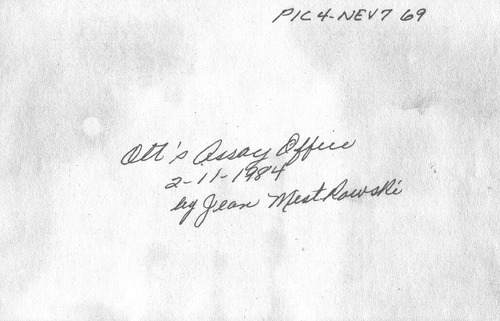 PIC 4-NEV7 69
Ott's Assay Office
2-11-1984
by Jean Mestrowski